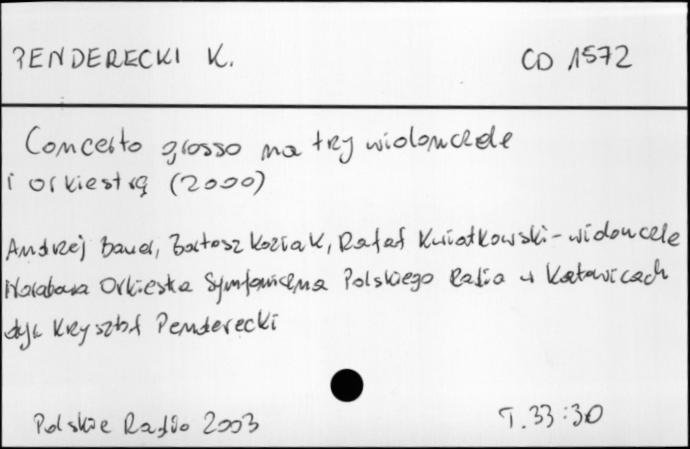 PENDERECKI K. CD 1572
Concerto grosso na trzy wiolonczele
i orkiestrę (2000)
Andrzej Bauer, Bartosz Koziak, Rafał Kwiatkowski - wiolonczele
Narodowa Orkiestra Symfoniczna Polskiego Radia w Katowicach
dyr. Krzysztof Penderecki
Polskie Radio 2003 T. 33:30